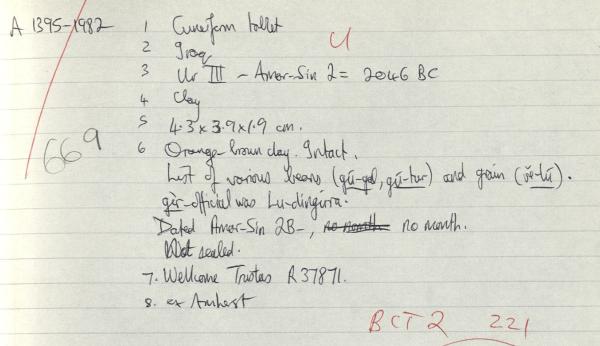 A 1395-1982 1 Cuneiform tablet
U
2 Iraq
3 Ur III - Amar-Sin 2 = 2046 BC
4 Clay
5 4.3 x 3.9 x 1.9 cm.
669
6 Orange-brown clay. Intact.
List of various beans (gú-gal, gú-tur) and grain (še-lú).
gìr-official was Lu-dingirra.
Dated Amar-Sin 2B-, no month no month.
Not sealed.
7. Wellcome Trustees R37871.
8. ex Amherst
BCT 2 221